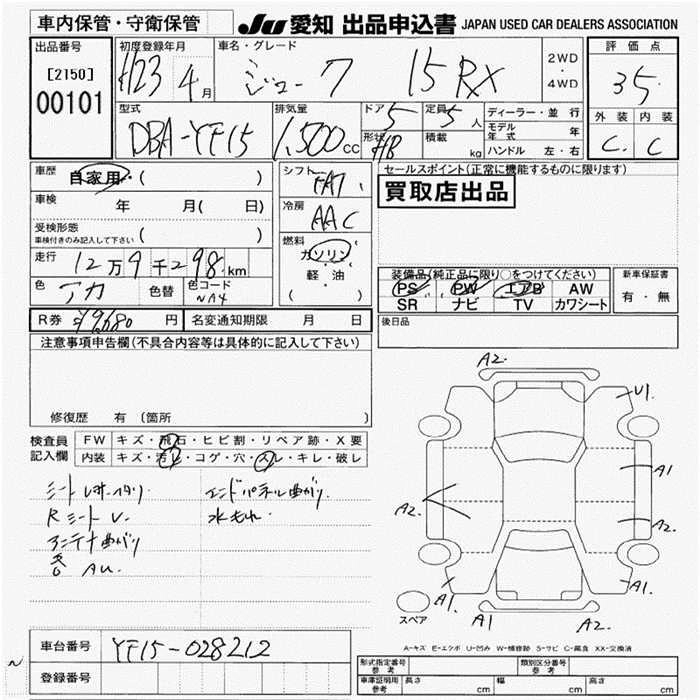 車内保管・守衛保管
JU 愛知 出品申込書 JAPAN USED CAR DEALERS ASSOCIATION
出品番号
[2150]
00101
初度登録年月
H23 4月
車名・グレード
ジューク 15RX
2WD
・
4WD
評価点
3.5
外装 内装
C C
型式
DBA-YF15
排気量
1,500cc
ドア 5
形状 HB
定員 5人
積載 kg
ディーラー・並行
モデル年式 年
ハンドル 左・右
車歴 自家用・( )
車検 年 月( 日)
受検形態
車検付きのみ記入して下さい
走行 12万9千298km
色 アカ 色替 色コード NA4
シフト FAT
冷房 AAC
燃料
ガソリン
軽・油
( )
セールスポイント(正常に機能するものに限ります)
買取店出品
装備品(純正品に限り○をつけてください)
PS PW エアB AW
SR ナビ TV カワシート
新車保証書
有・無
R券 ¥9,680 円 名変通知期限 月 日
後日品
注意事項申告欄(不具合内容等は具体的に記入して下さい)
修復歴 有 (箇所
検査員記入欄
FW キズ・飛石・ヒビ割・リペア跡・X要
内装 キズ・汚レ・コゲ・穴・スレ・キレ・破レ
エンドパネル曲がり
Rシート V.
水もれ
アンテナ曲がり
各 AU.
A2.
U1
A1
A2.
A2.
A1.
A1.
A1
A2.
スペア
A-キズ E-エクボ U-凹み W-補修跡 S-サビ C-腐食 XX-交換済
車台番号 YF15-028212
登録番号
形式指定番号 参考
類別区分番号 参考
車庫証明用 参考 長さ cm 幅 cm 高さ cm